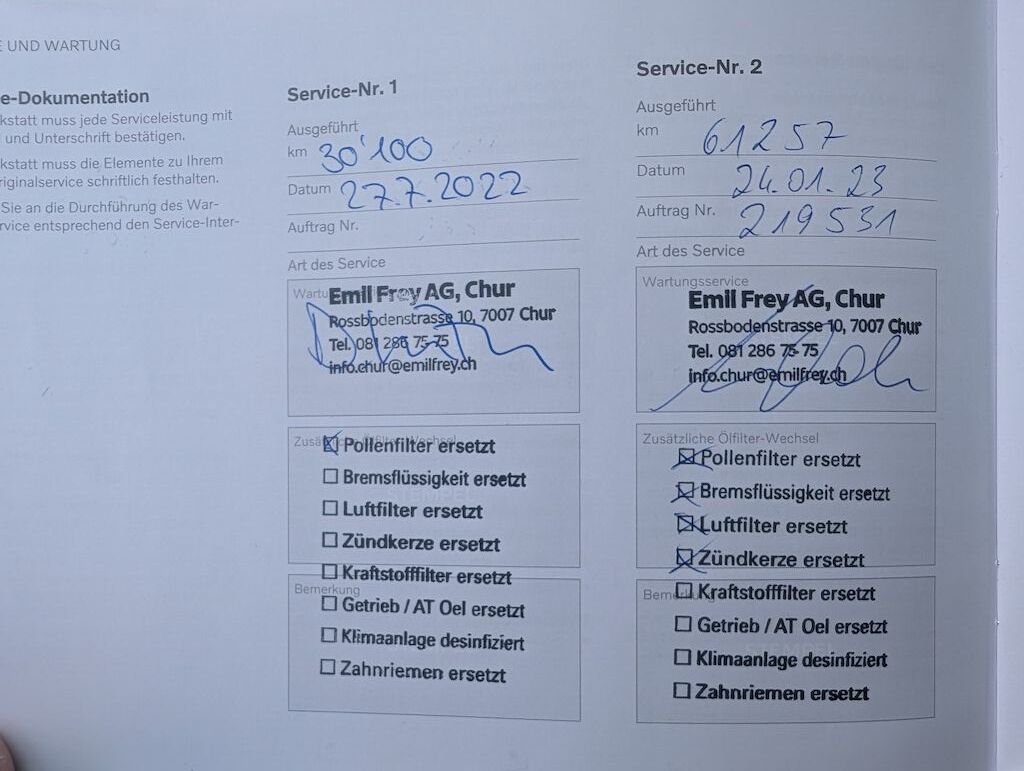 E UND WARTUNG
e-Dokumentation
kstatt muss jede Serviceleistung mit
und Unterschrift bestätigen.
kstatt muss die Elemente zu Ihrem
riginalservice schriftlich festhalten.
Sie an die Durchführung des War-
rvice entsprechend den Service-Inter-
Service-Nr. 1
Ausgeführt
km 30'100
Datum 27.7.2022
Auftrag Nr.
Art des Service
Wartu
Emil Frey AG, Chur
Rossbodenstrasse 10, 7007 Chur
Tel. 081 286 75 75
info.chur@emilfrey.ch
Zusätzliche Ölfilter-Wechsel
Pollenfilter ersetzt
Bremsflüssigkeit ersetzt
Luftfilter ersetzt
Zündkerze ersetzt
Kraftstofffilter ersetzt
Bemerkung
Getrieb / AT Oel ersetzt
Klimaanlage desinfiziert
Zahnriemen ersetzt
Service-Nr. 2
Ausgeführt
km 61257
Datum 24.01.23
Auftrag Nr. 219531
Art des Service
Wartungsservice
Emil Frey AG, Chur
Rossbodenstrasse 10, 7007 Chur
Tel. 081 286 75 75
info.chur@emilfrey.ch
Zusätzliche Ölfilter-Wechsel
Pollenfilter ersetzt
Bremsflüssigkeit ersetzt
Luftfilter ersetzt
Zündkerze ersetzt
Kraftstofffilter ersetzt
Bemerkung
Getrieb / AT Oel ersetzt
Klimaanlage desinfiziert
Zahnriemen ersetzt